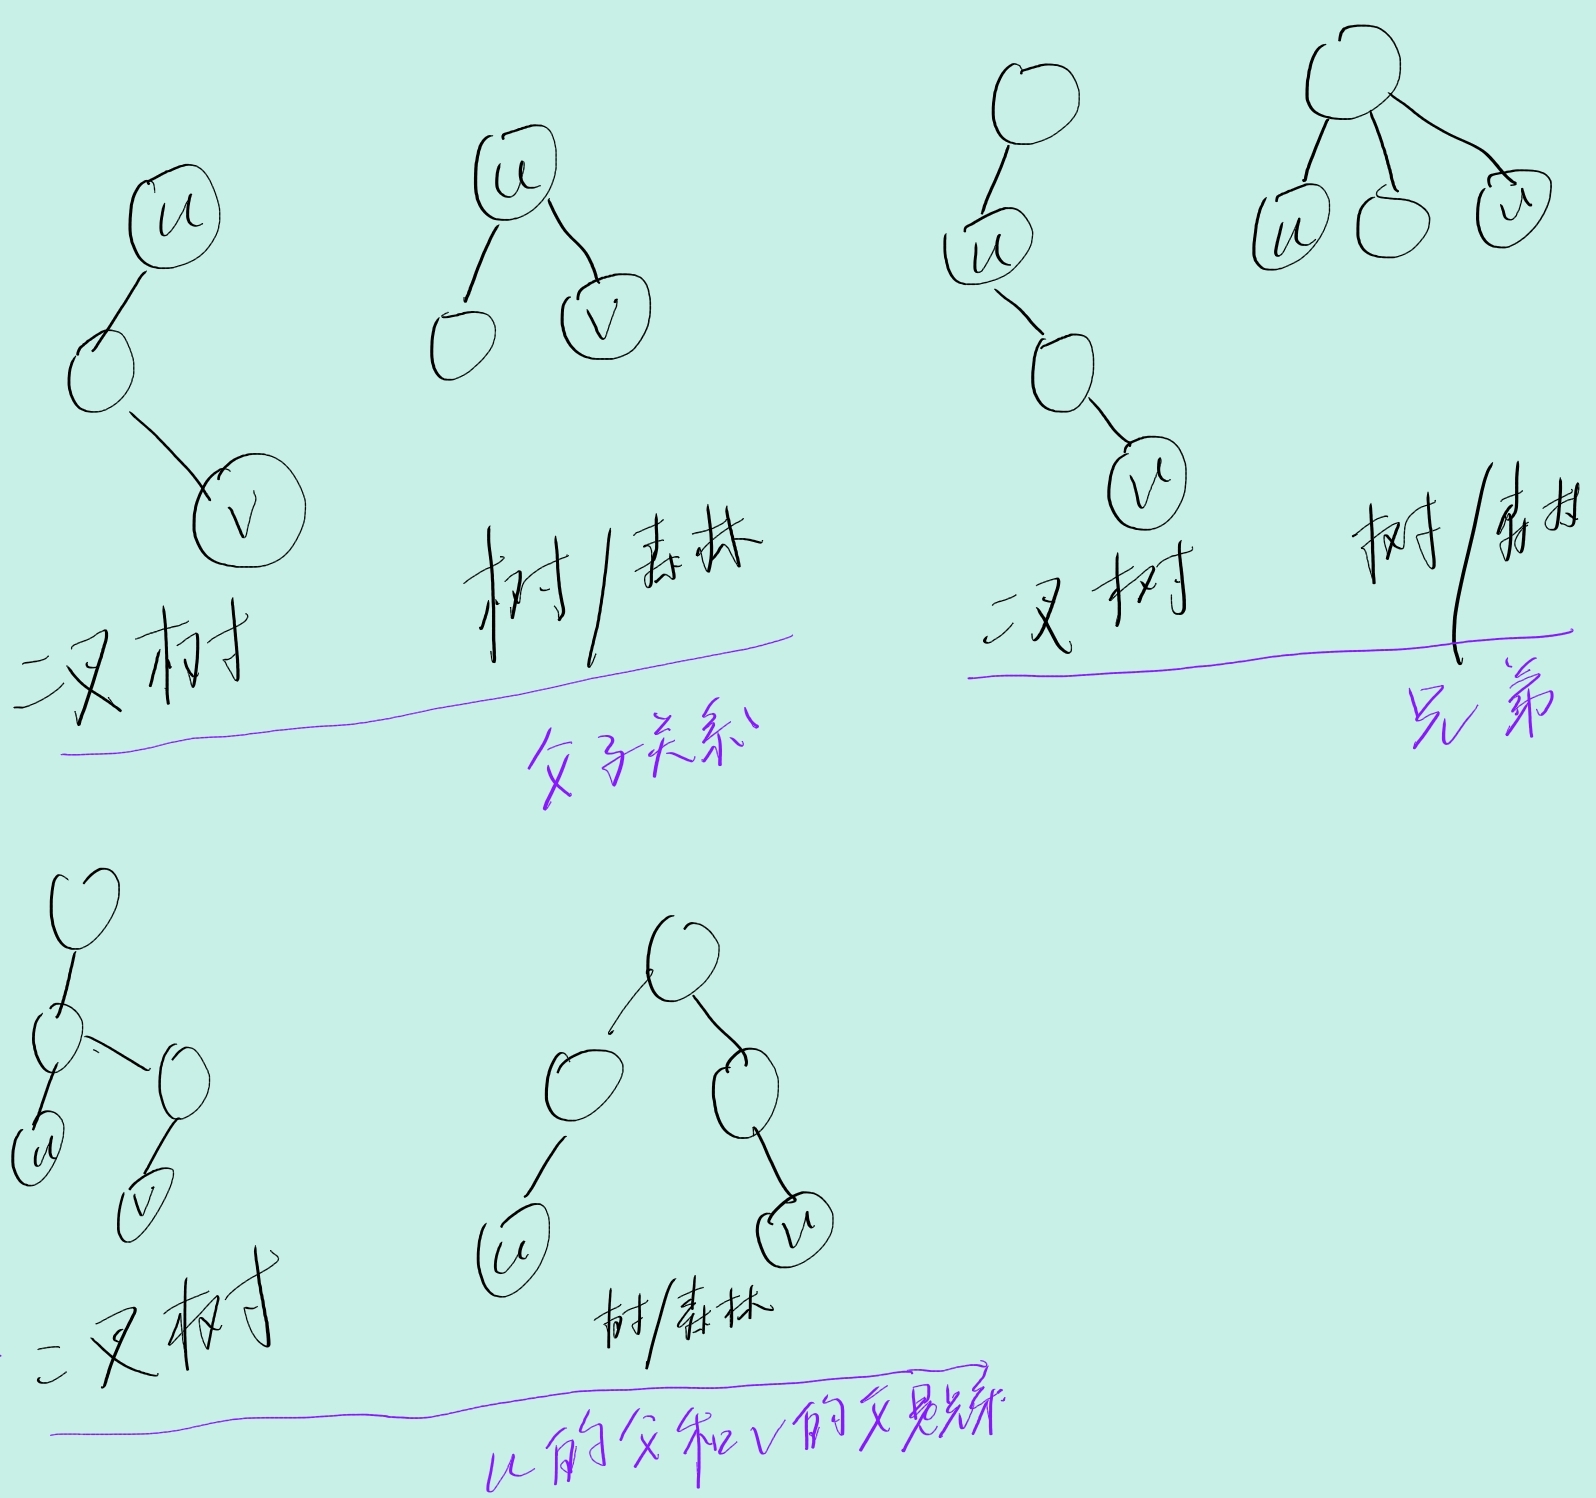 u
v
二叉树
u
v
树/森林
父子关系
u
v
二叉树
u
v
树/森林
兄弟
u
v
二叉树
u
v
树/森林
u的父和v的父是兄弟